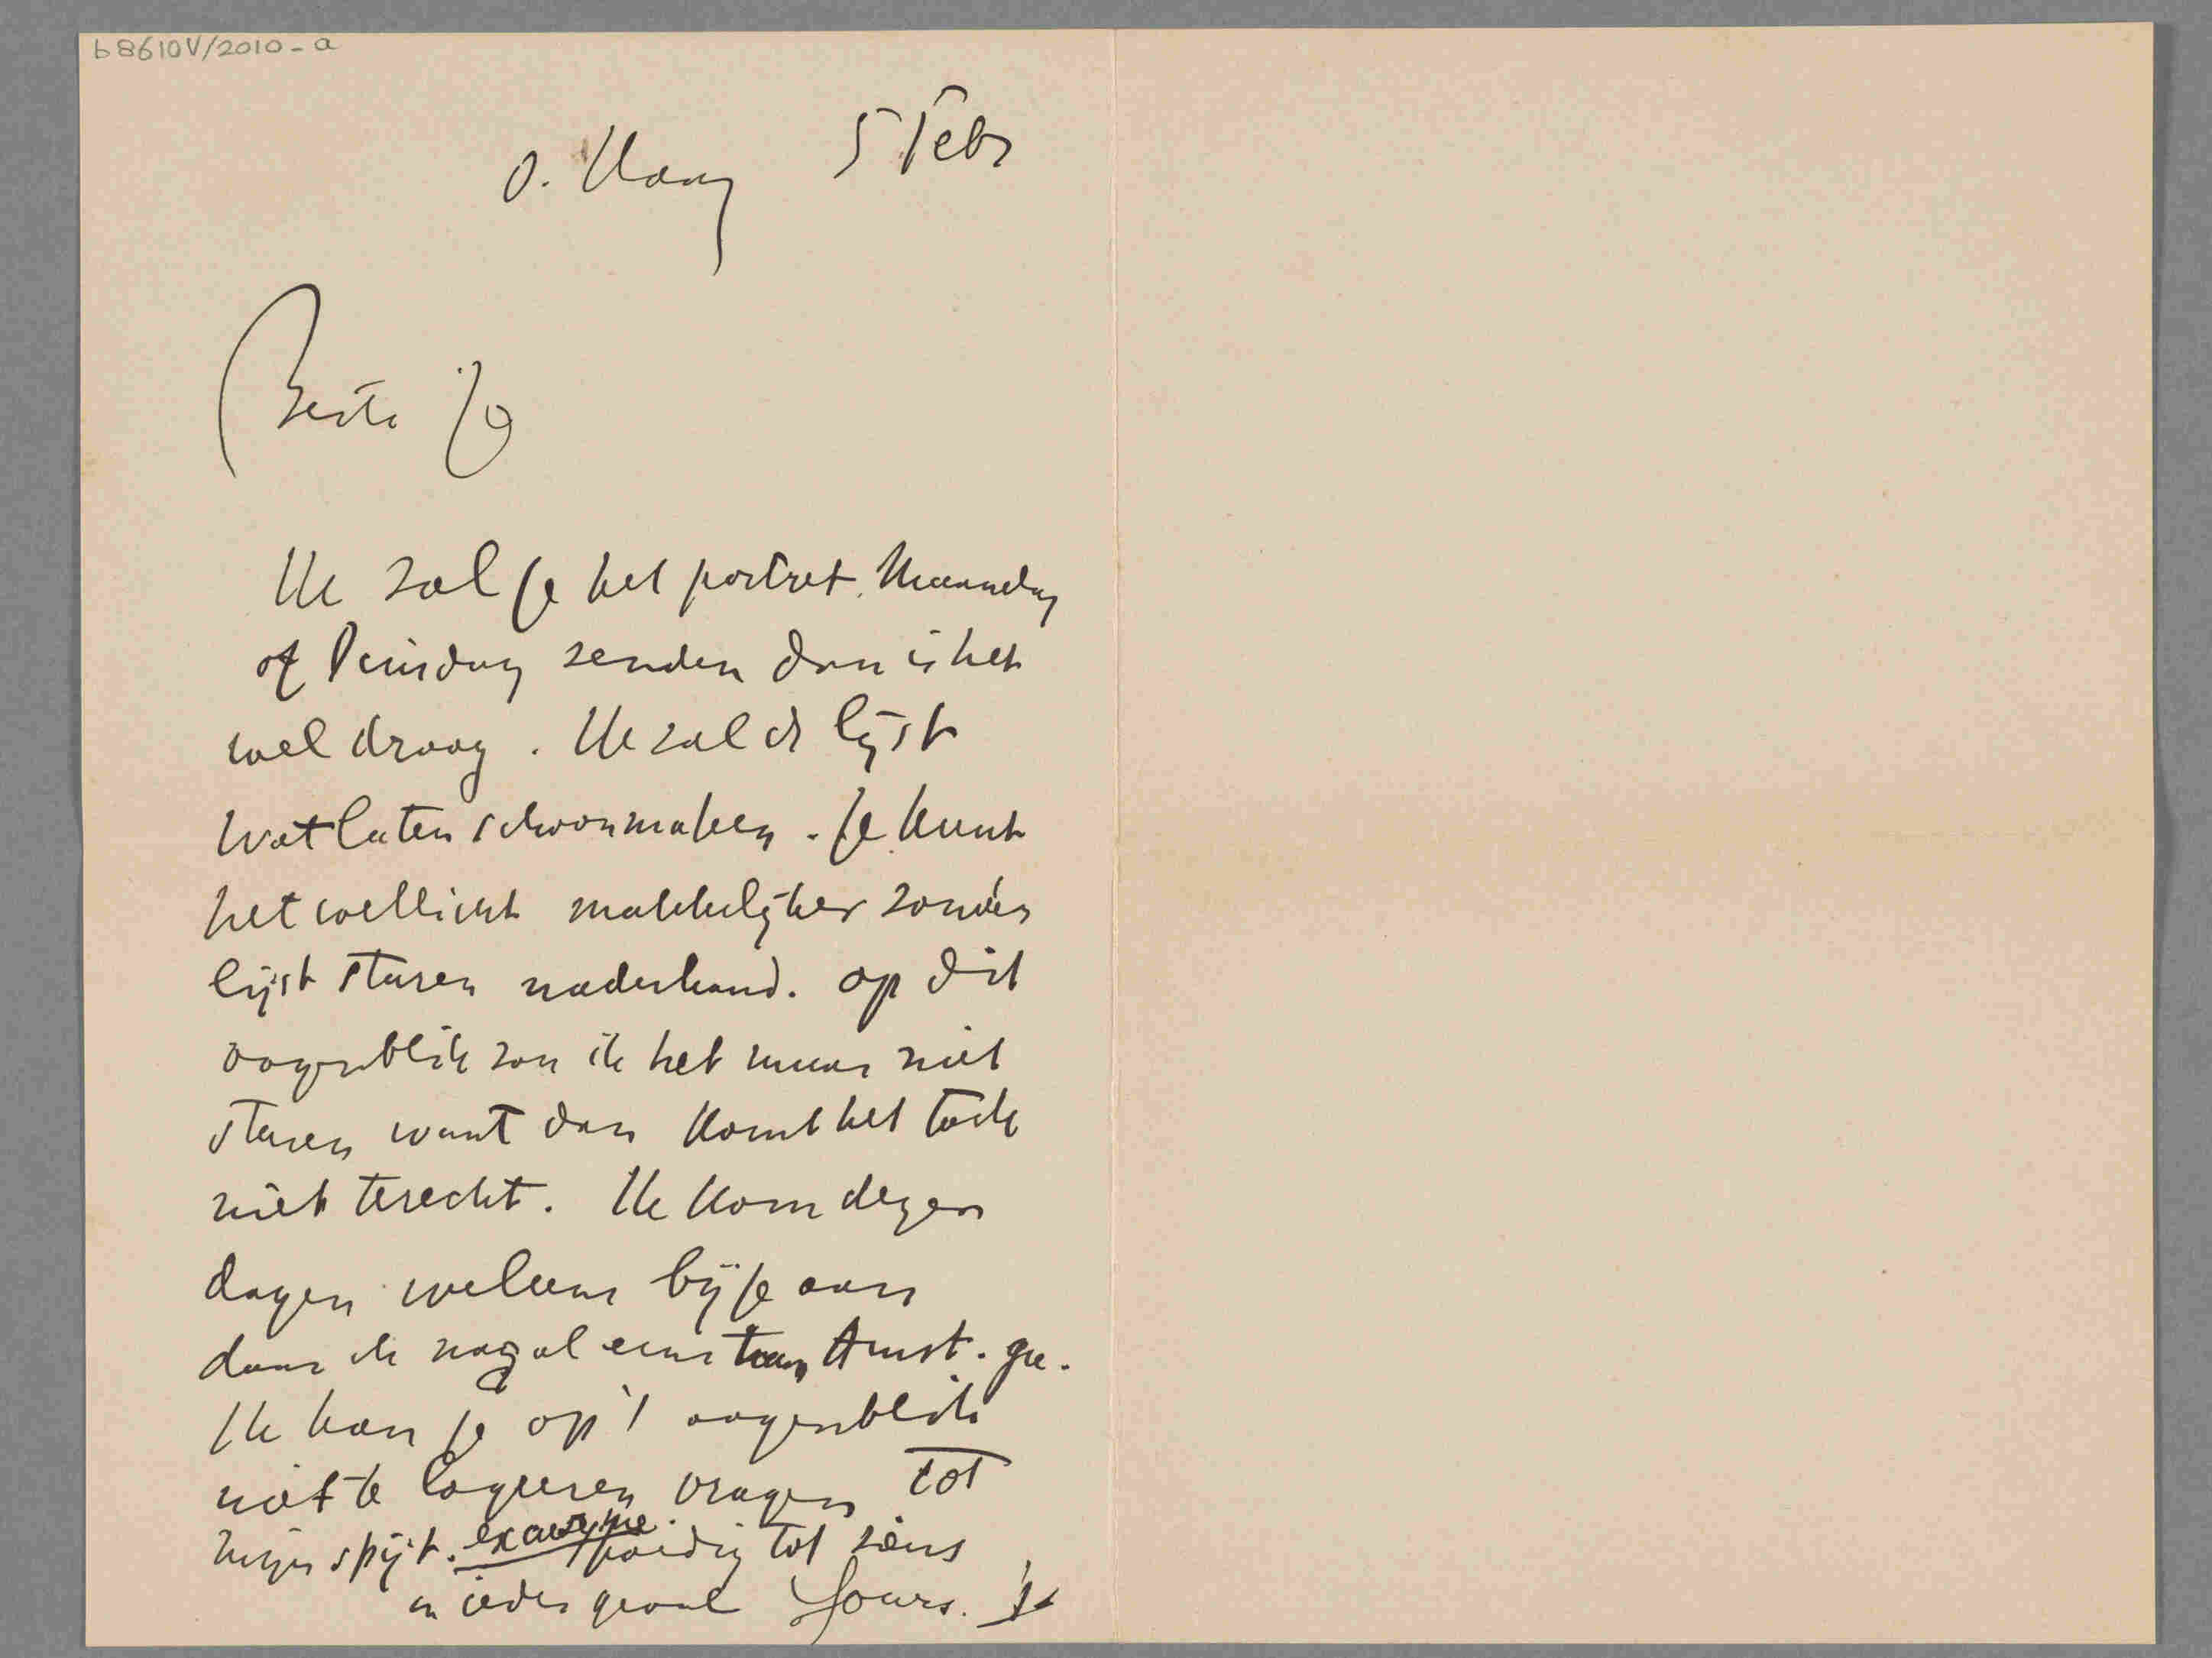 b8610V/2010-a
d. Haag 5 Febr
Beste Jo
Ik zal je het portret Maandag
of Dinsdag zenden dan is het
wel droog. Ik zal de lijst
wat laten schoonmaken. Je kunt
het wellicht makkelijker zonder
lijst sturen naderhand. op dit
oogenblik zou ik het maar niet
sturen want dan komt het toch
niet terecht. Ik kom dezer
dagen weleens bij je aan
daar ik nogal eens naar Amst. ga.
Ik kan je op 't oogenblik
niet te logeeren vragen tot
mijn spijt. spoedig tot ziens
in ieder geval Yours.